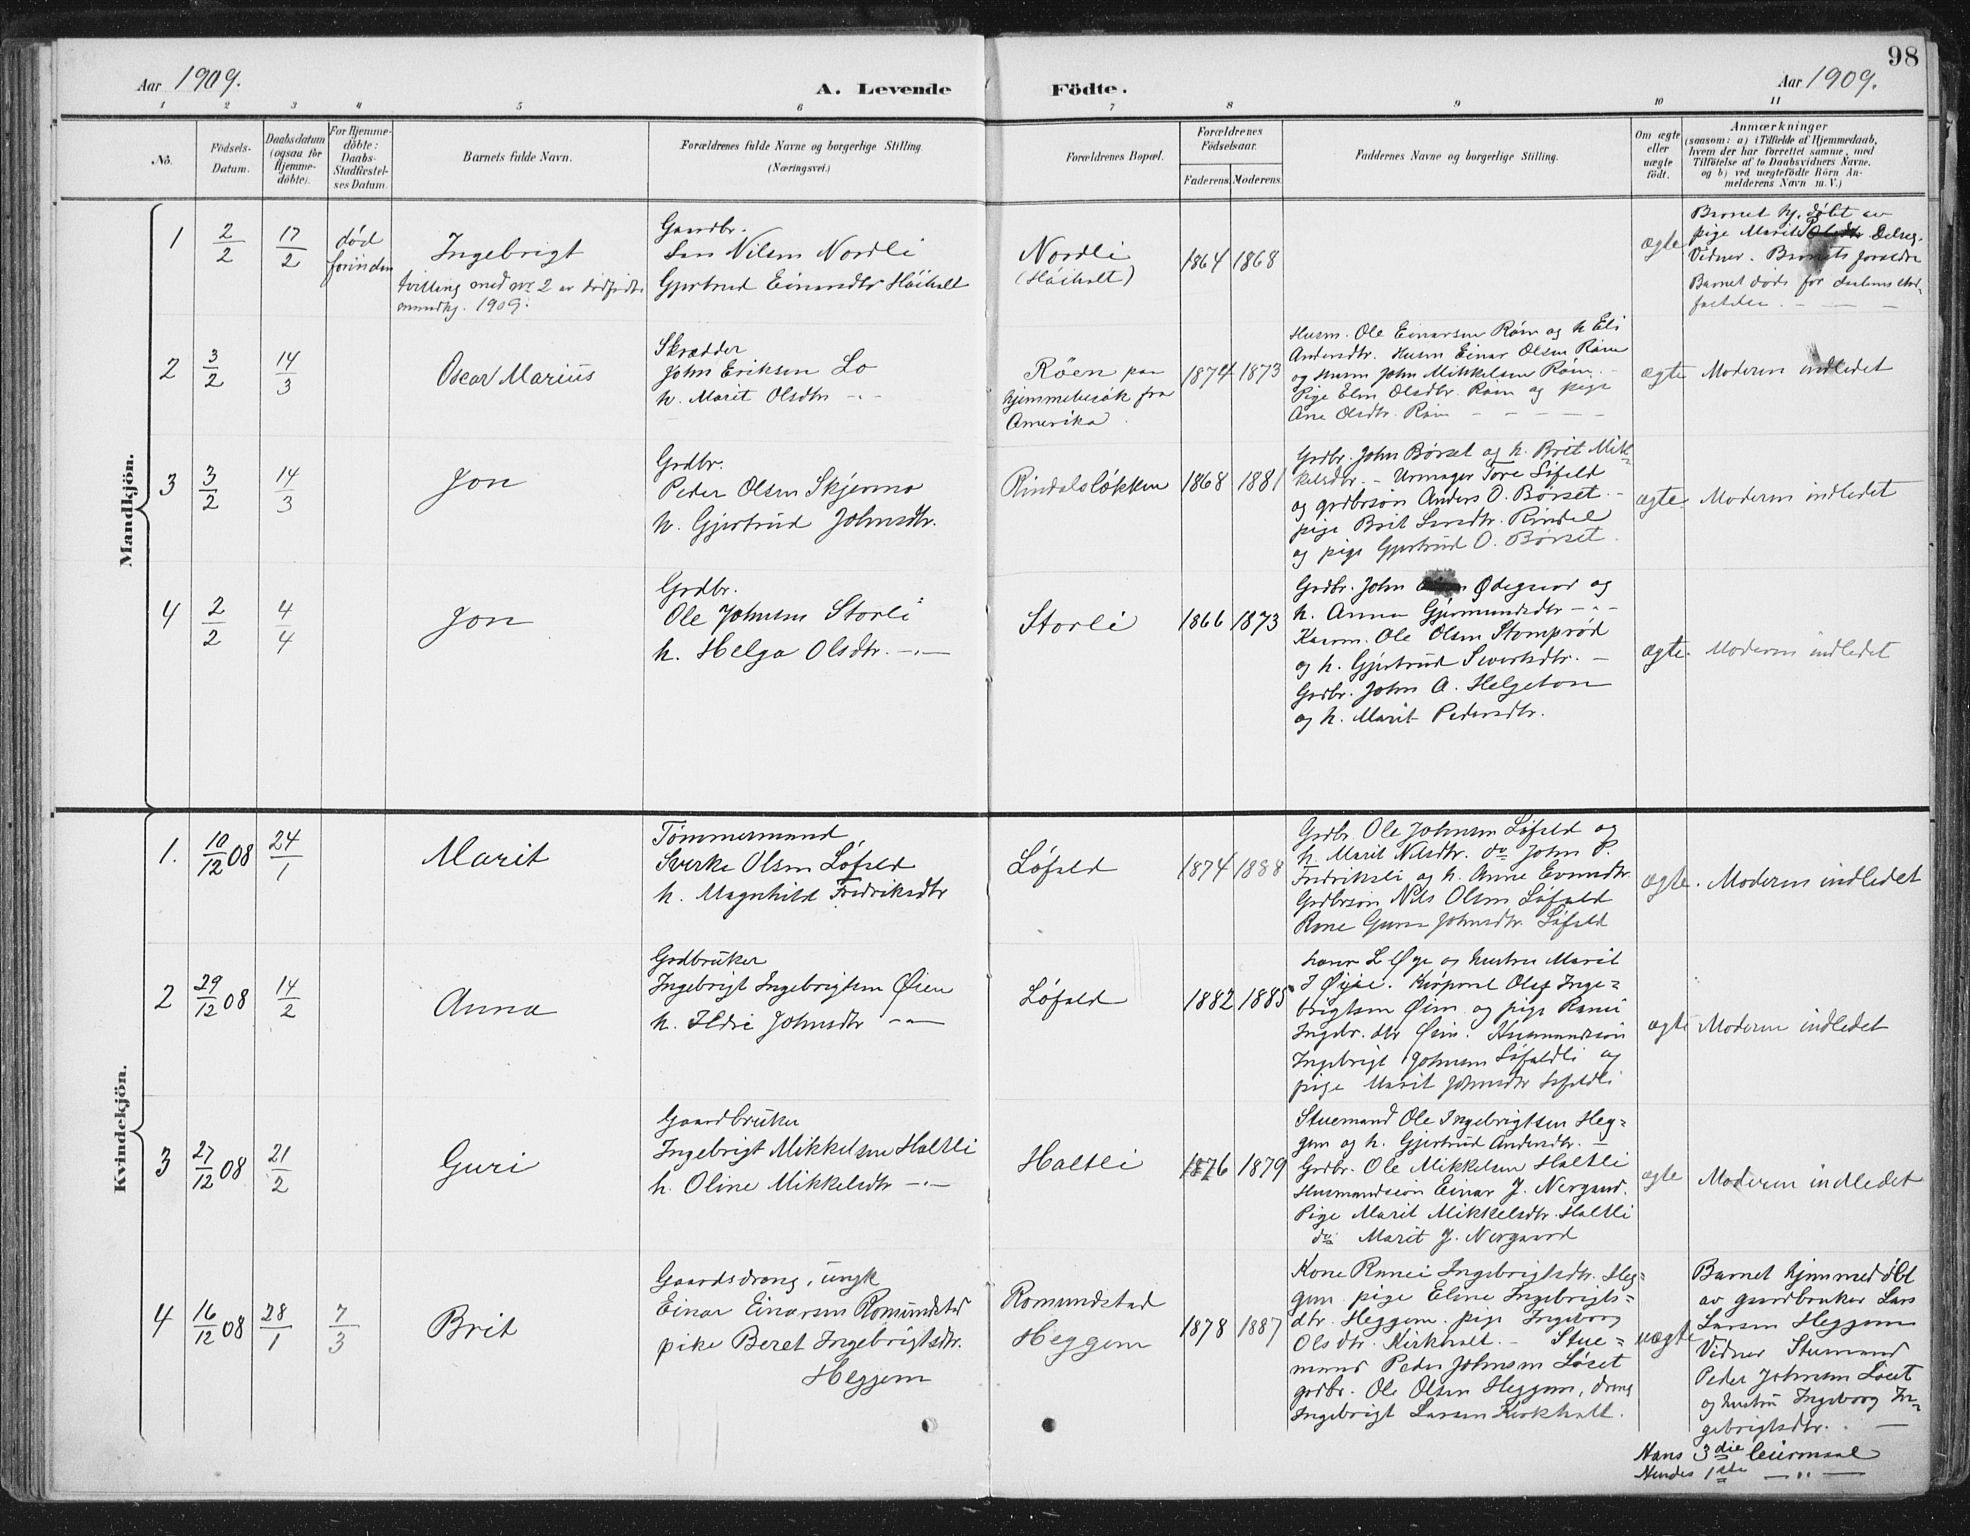 98
Aar 1909.
A. Levende Födte.
Aar 1909.
1 2 3 4 5 6 7 8 9 10 11
No.
Födsels-Datum.
Daabsdatum (ogsaa for Hjemme-döbte).
For Hjemme-döbte: Daabs-Stadfæstel-ses Datum.
Barnets fulde Navn.
Forældrenes fulde Navne og borgerlige Stilling.
(Næringsvei.)
Forældrenes Bopæl.
Forældrenes Födselsaar.
Faderens. Moderens.
Faddernes Navne og borgerlige Stilling.
Om ægte eller uægte födt.
Anmærkninger
(saasom: a) i Tilfælde af Hjemmedaab,
hvem der har forrettet samme, med
Tilföielse af to Daabsvidners Navne,
og b) ved uægtefödte Börn An-
melderens Navn m. V.)
Mandkjön.
1
2/2
17/2
død
forinden
Ingebrigt
tvilling med nr 2 av dødfødte
mandkj. 1909.
Gaardbr.
Lars Nilsen Nordli
Gjertrud Einarsdtr Høiholt
Nordli
(Høiholt)
1864 1868
ægte
Barnet hj. døbt av
pige Marit
Vidner. Barnets forældre
Barnet døde før daabens stad-
fæstelse. — — —
2
3/2
14/3
Oscar Marius
Skrædder
John Eriksen Lo
h. Marit Olsdtr -"-
Røen paa
hjemmebesøk fra
Amerika.
1874 1873
Husm. Ole Einarsen Røen og h Eli
Andersdtr. Husm Einar Olsen Røen
og Husm John Mikkelsen Røen. -
Pige Elen Olsdtr. Røen og pige
Ane Olsdtr. Røen - - - - -
ægte
Moderen indledet
3
3/2
14/3
Jon
Grdbr.
Peder Olsen Skjermo
h. Gjertrud Johnsdtr.
Rindalsløkken
1868 1881
Grdbr. John Børset og h. Brit Mik-
kelsdtr. - Urmager Tore Løfald
og grdbrsøn Anders O. Børset. -
pige Brit Larsdtr. Rindal
og pige Gjertrud O. Børset.
ægte.
Moderen indledet
4
2/2
4/4
Jon
Grdbr.
Ole Johnsen Storli
h. Helga Olsdtr. -"-
Storli
1866 1873
Grdbr. John Ødegaard og
h. Anna Gjermundsdtr -"-
Ole Olsen Stomprød
og h. Gjertrud Sivertsdtr. -
Grdbr. John A. Helgeton
og h. Marit Pedersdtr.
ægte.
Moderen indledet
Kvindekjön.
1.
10/12 08
24/1
Marit
Tømmermand
Sverke Olsen Løfald
h. Magnhild Fredriksdtr
Løfald
1874 1888
Grdbr. Ole Johnsen Løfald og
h. Marit Nilsdtr. do John P.
Fredriksli og h. Anne Evensdtr
Grdbrsøn Nils Olsen Løfald
Kone Guru Johnsdtr. Løfald
ægte.
Moderen indledet
2
29/12 08
14/2
Anna
Grdbruker
Ingebrigt Ingebrigtsen Øien
h. Ildri Johnsdtr -"-
Løfald
1882 1885
L Øye og hustru Marit
I Øye. Korporal Olaf Inge-
brigtsen Øien og pige Ranei
Ingebr. dtr Øien. Husmandssøn
Ingebrigt Johnsen Løfaldli og
pige Marit Johnsdtr Løfaldli
ægte
Moderen indledet
3
27/12 08
21/2
Guri
Gaardbruker
Ingebrigt Mikkelsen Haltli
h. Oline Mikkelsdtr -"-
Haltli
1876 1879
Stuemand Ole Ingebrigtsen Heg-
gem og h. Gjertrud Andersdtr. -
Grdbr. Ole Mikkelsen Haltli
Husmandssøn Einar J. Nergaard.
Pige Marit Mikkelsdtr. Haltli
do Marit J. Nergaard
ægte
Moderen indledet
4
16/12 08
28/1
7/3
Brit
Gaardsdreng, ungk
Einar Einarsen Romundstad
pike Beret Ingebrigtsdtr.
Heggem
Romundstad
Heggem
1878 1887
Kone Ranei Ingebrigtsdtr. Heg-
gem pige Eline Ingebrigts-
dtr. Heggem. pige Ingeborg
Olsdtr. Kirkholt. - Stue-
mand Peder Johnsen Løset
grdbr. Ole Olsen Heggem, dreng
Ingebrigt Larsen Kirkholt.
uægte
Barnet hjemmedøbt
av gaardbruker Lars
Larsen Heggem
Vidner Stuemand
Peder Johnsen Løset
og hustru Ingeborg In-
gebrigtsdtr. —
Hans 3die leiermaal
Hendes 1ste — " —